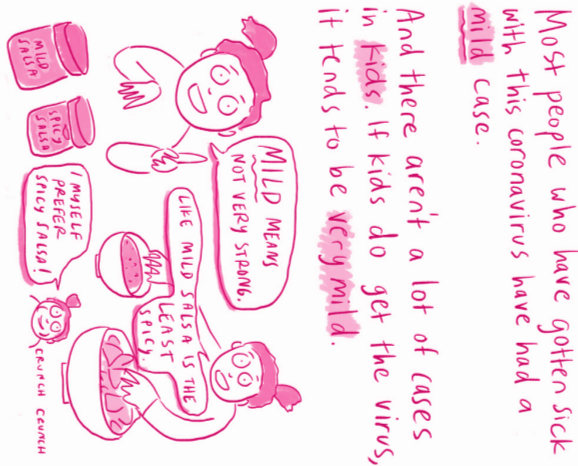 Most people who have gotten sick
with this coronavirus have had a
mild case.
And there aren't a lot of cases
in kids. If kids do get the virus,
it tends to be very mild.
MILD MEANS
NOT VERY STRONG.
LIKE MILD SALSA IS THE
LEAST
SPICY.
MILD
SALSA
SPICY
SALSA
I MYSELF
PREFER
SPICY SALSA!
CRUNCH CRUNCH